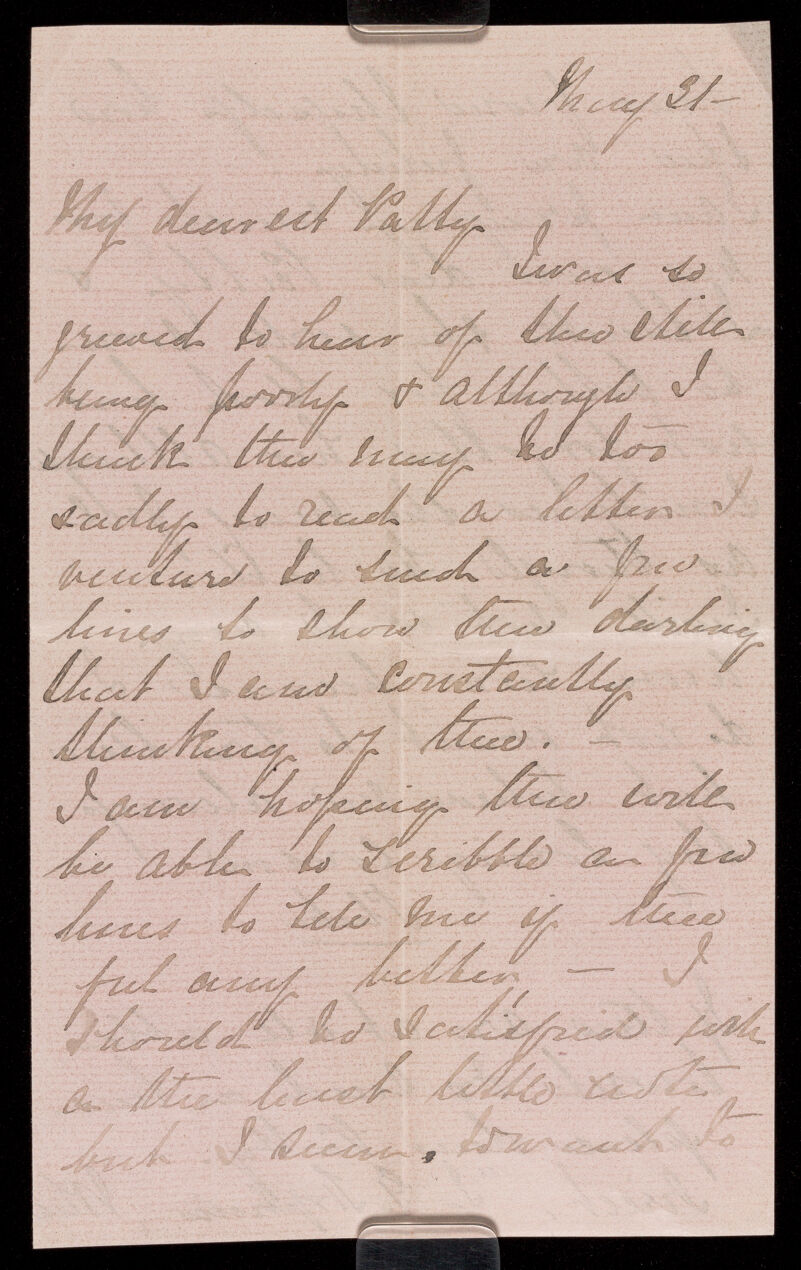 May 31 -
My dearest Patty
I was so
grieved to hear of thee still
being poorly & although I
think thee may be too
sadly to read a letter I
venture to send a few
lines to show thee darling
that I am constantly
thinking of thee. -
I am hoping thee will
be able to scribble a few
lines to tell me if thee
feel any better, - I
should be satisfied with
a the least little note
but I seem. to want to